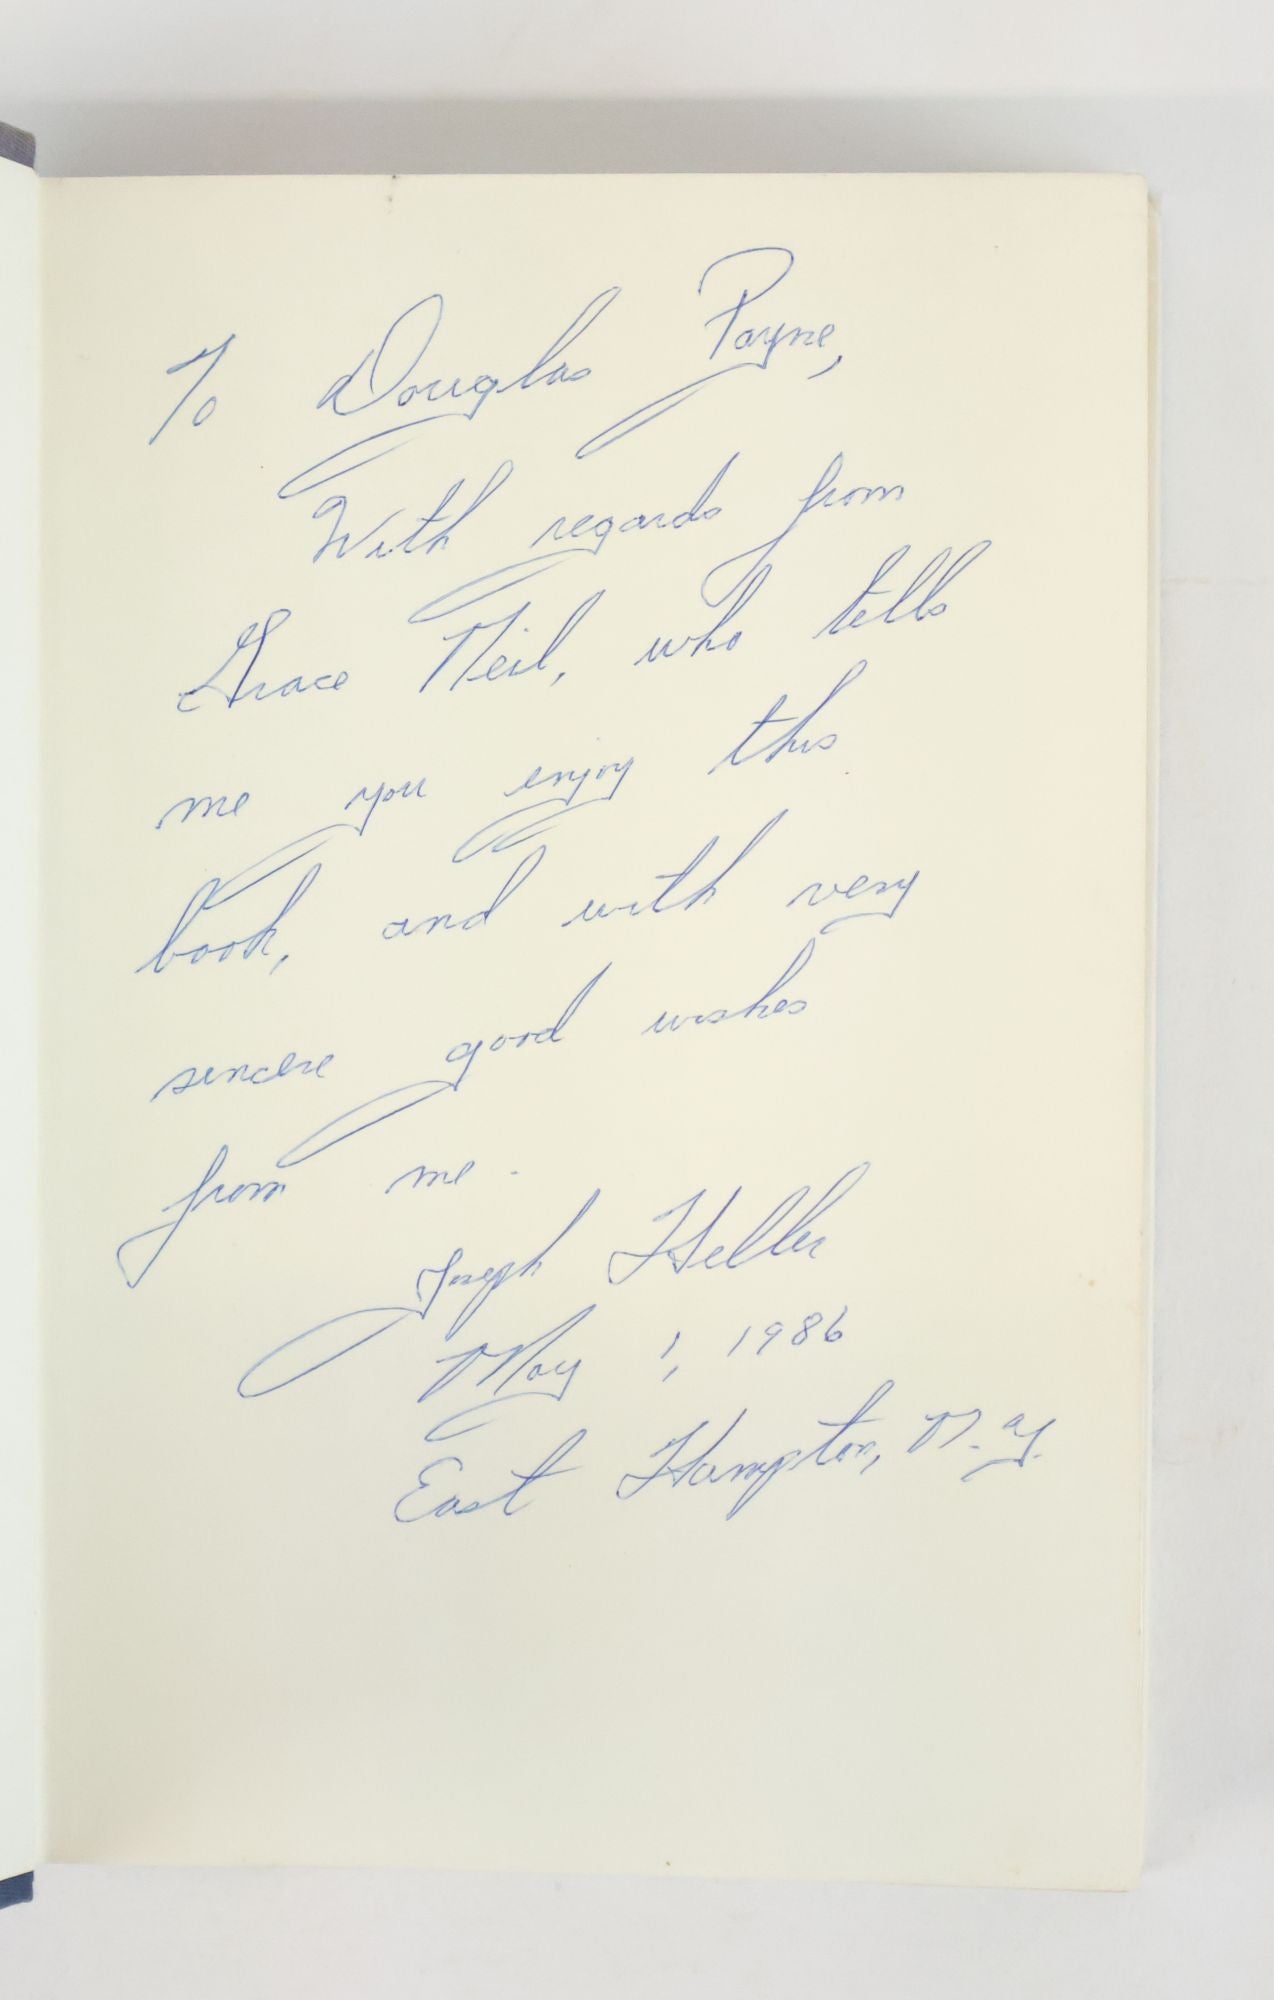 To Douglas Payne,
With regards from
Grace Neil, who tells
me you enjoy this
book, and with very
sincere good wishes
from me.
Joseph Heller
May 1, 1986
East Hampton, N.Y.